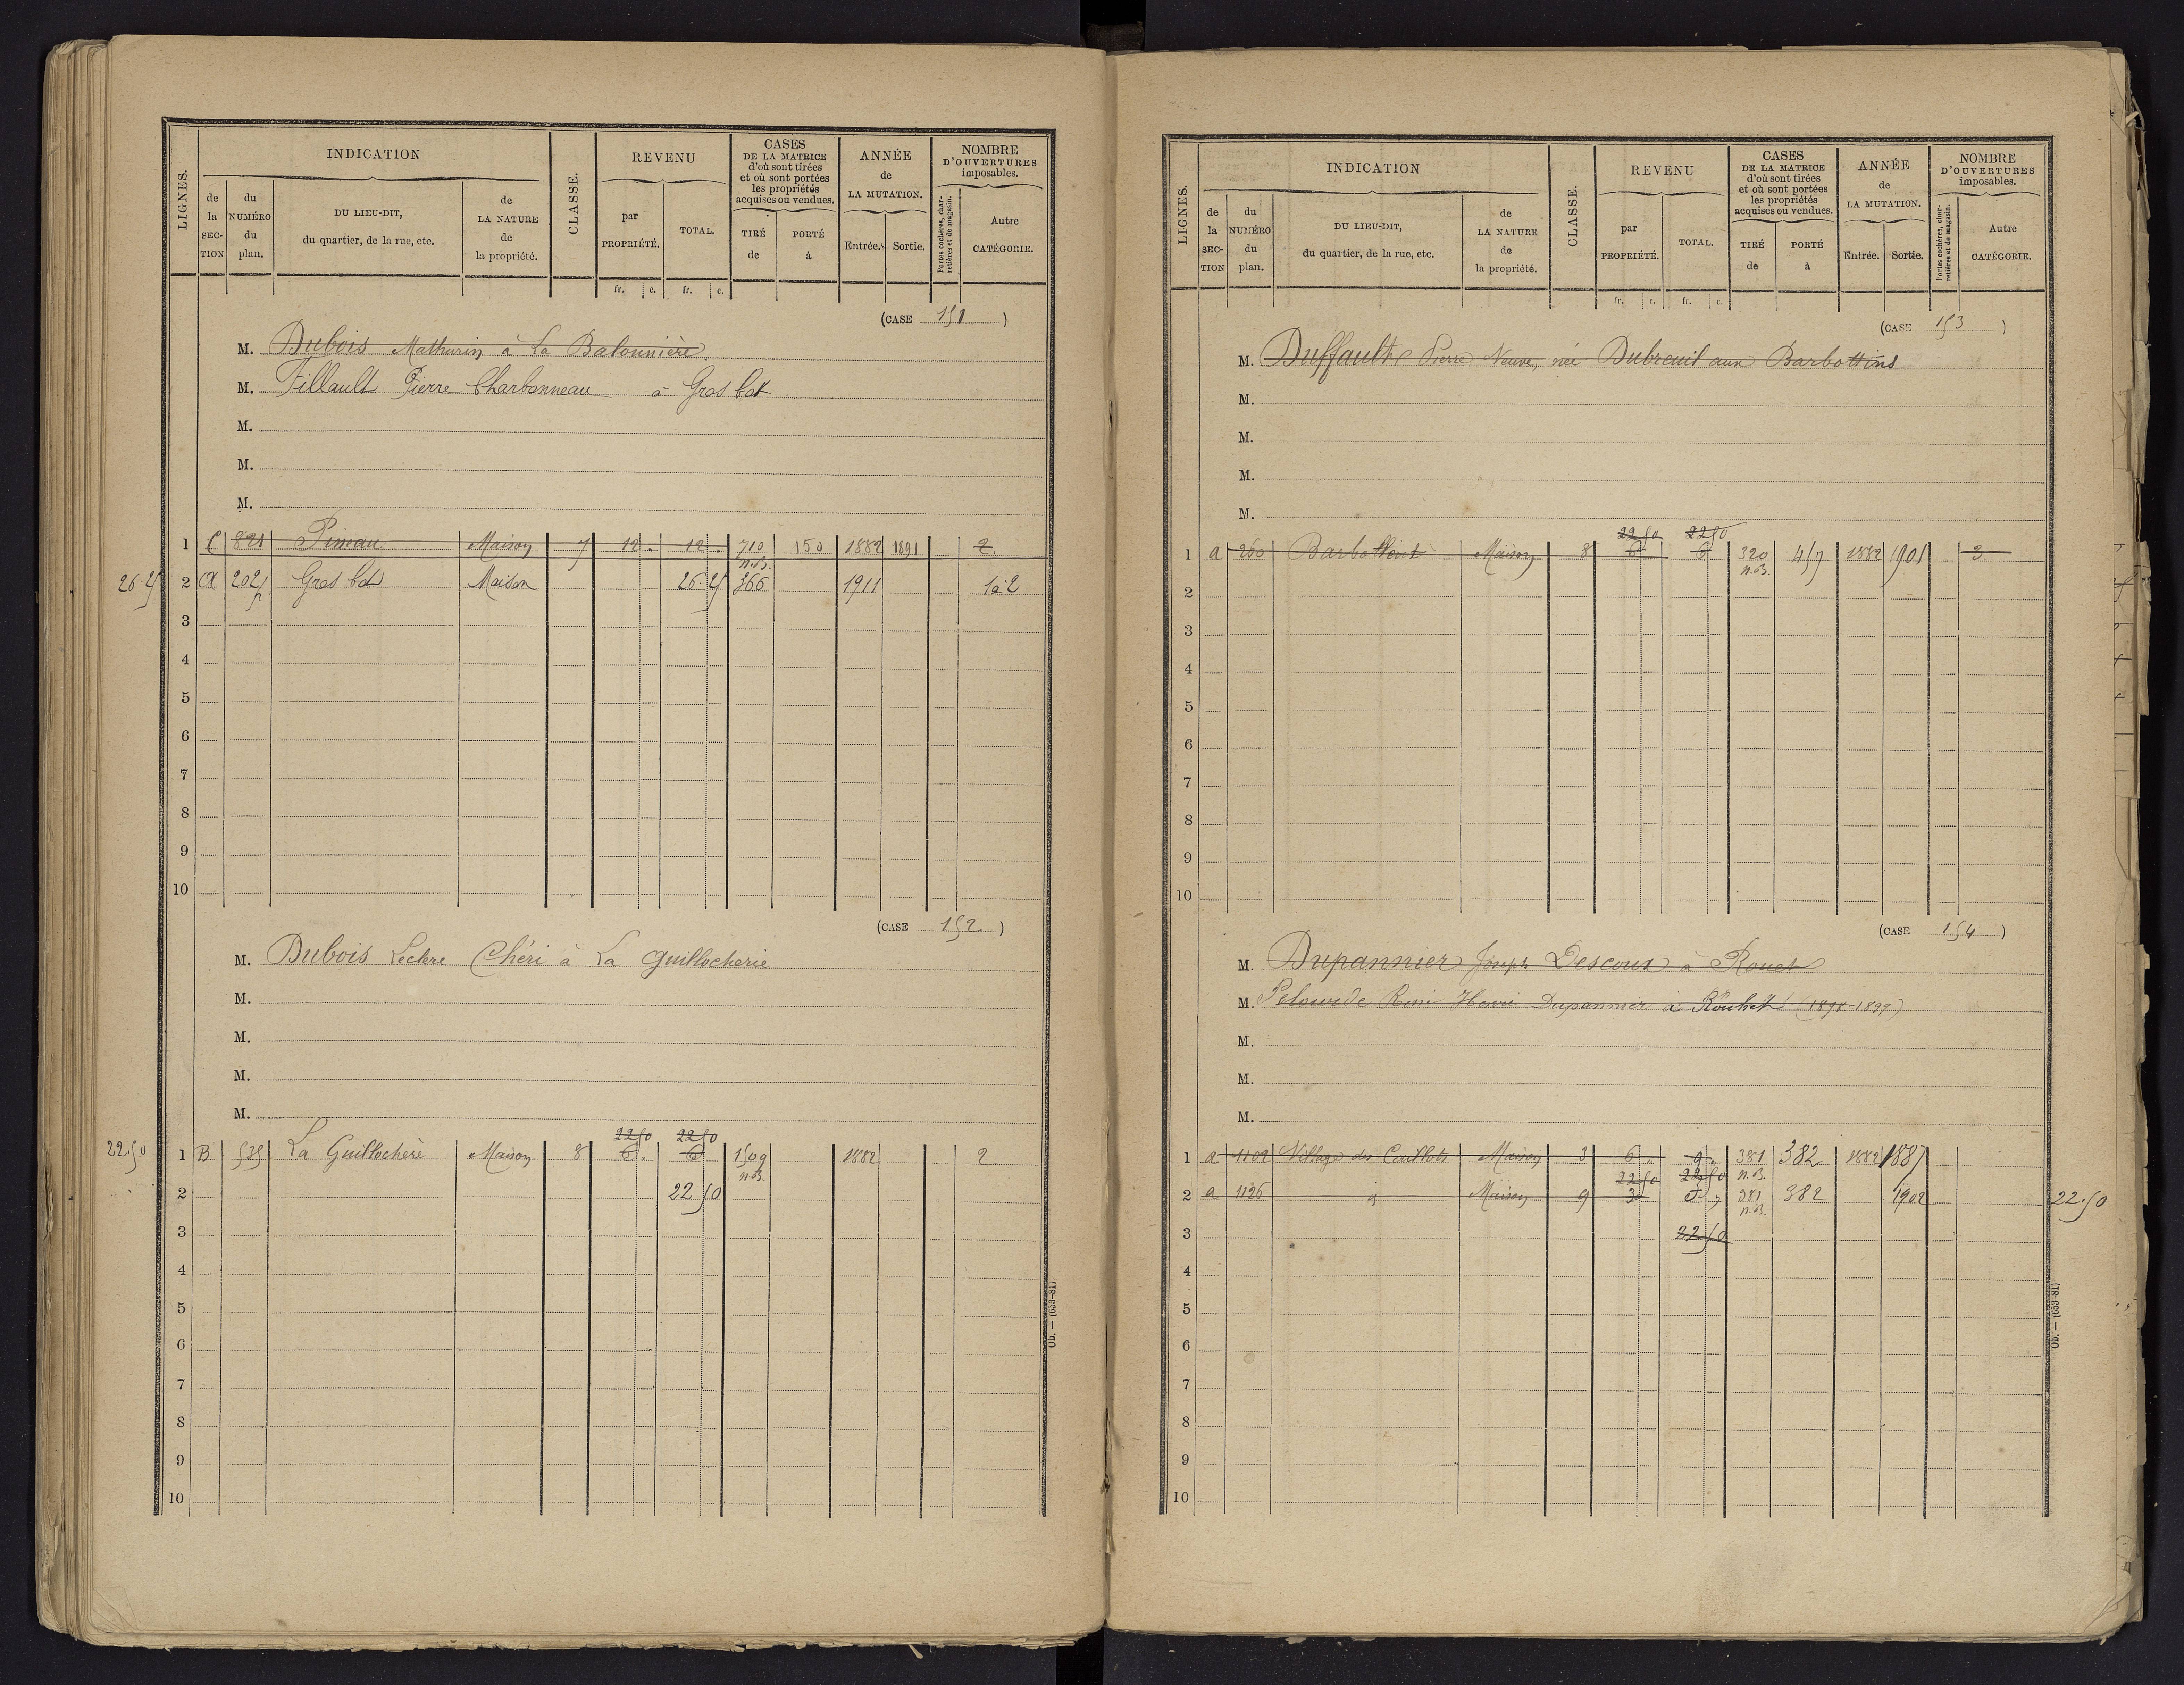 LIGNES.
INDICATION
de la SECTION
du NUMÉRO du plan.
DU LIEU-DIT, du quartier, de la rue, etc.
de LA NATURE de la propriété.
CLASSE.
REVENU
par PROPRIÉTÉ.
TOTAL.
CASES DE LA MATRICE d'où sont tirées et où sont portées les propriétés acquises ou vendues.
TIRÉ de
PORTÉ à
ANNÉE de LA MUTATION.
Entrée.
Sortie.
NOMBRE D'OUVERTURES imposables.
Portes cochères, charretières et de magasin.
Autre CATÉGORIE.
fr. c. fr. c.
(CASE 151 )
M. Dubois Mathurin à La Balonnière.
M. Fillault Pierre Charbonneau à Gros bot
M.
M.
M.
1 C 821 Pineau Maison 7 12 . 12 . 710 150 1882 1891 2.
n.B.
26.25 2 A 202 Gros bot Maison 26.25 366 1911 1 à 2
p
3
4
5
6
7
8
9
10
(CASE 152 )
M. Dubois Leclere Chéri à La Guillocherie
M.
M.
M.
M.
22 50 22 50
22.50 1 B 535 La Guillochere Maison 8 6 . 6 1509 1882 2
n.B.
2 22 50
3
4
5
6
7
8
9
10
Ob. — (633-81)
LIGNES.
INDICATION
de la SECTION
du NUMÉRO du plan.
DU LIEU-DIT, du quartier, de la rue, etc.
de LA NATURE de la propriété.
CLASSE.
REVENU
par PROPRIÉTÉ.
TOTAL.
CASES DE LA MATRICE d'où sont tirées et où sont portées les propriétés acquises ou vendues.
TIRÉ de
PORTÉ à
ANNÉE de LA MUTATION.
Entrée.
Sortie.
NOMBRE D'OUVERTURES imposables.
Portes cochères, charretières et de magasin.
Autre CATÉGORIE.
fr. c. fr. c.
(CASE 153 )
M. Duffault Pierre Veuve, née Dubreuil aux Barbottins
M.
M.
M.
M.
22 50 22 50
1 a 260 Maison 8 6 6 320 457 1882 1901 3
n.B.
2
3
4
5
6
7
8
9
10
(CASE 154 )
M. Dupannier Joseph Descoux à Rouet
M. Henri Dupannier à Rouhet (1898-1899)
M.
M.
M.
1 a 1102 Village des Maison 3 6 „ 9 „ 381 382 1882 1887
22 50 22 50 n.B.
2 a 1126 Maison 9 3 381 382 1902 22.50
n.B.
3 22 50
4
5
6
7
8
9
10
Ob. — (633-81)